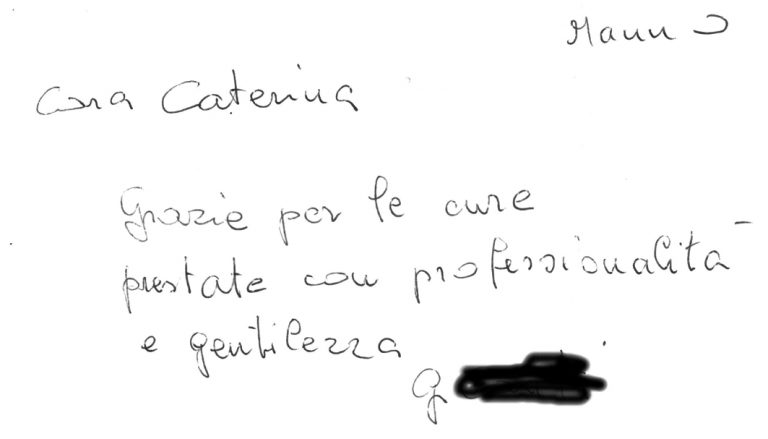 Manno
Cara Caterina
Grazie per le cure
prestate con professionalità
e gentilezza
G